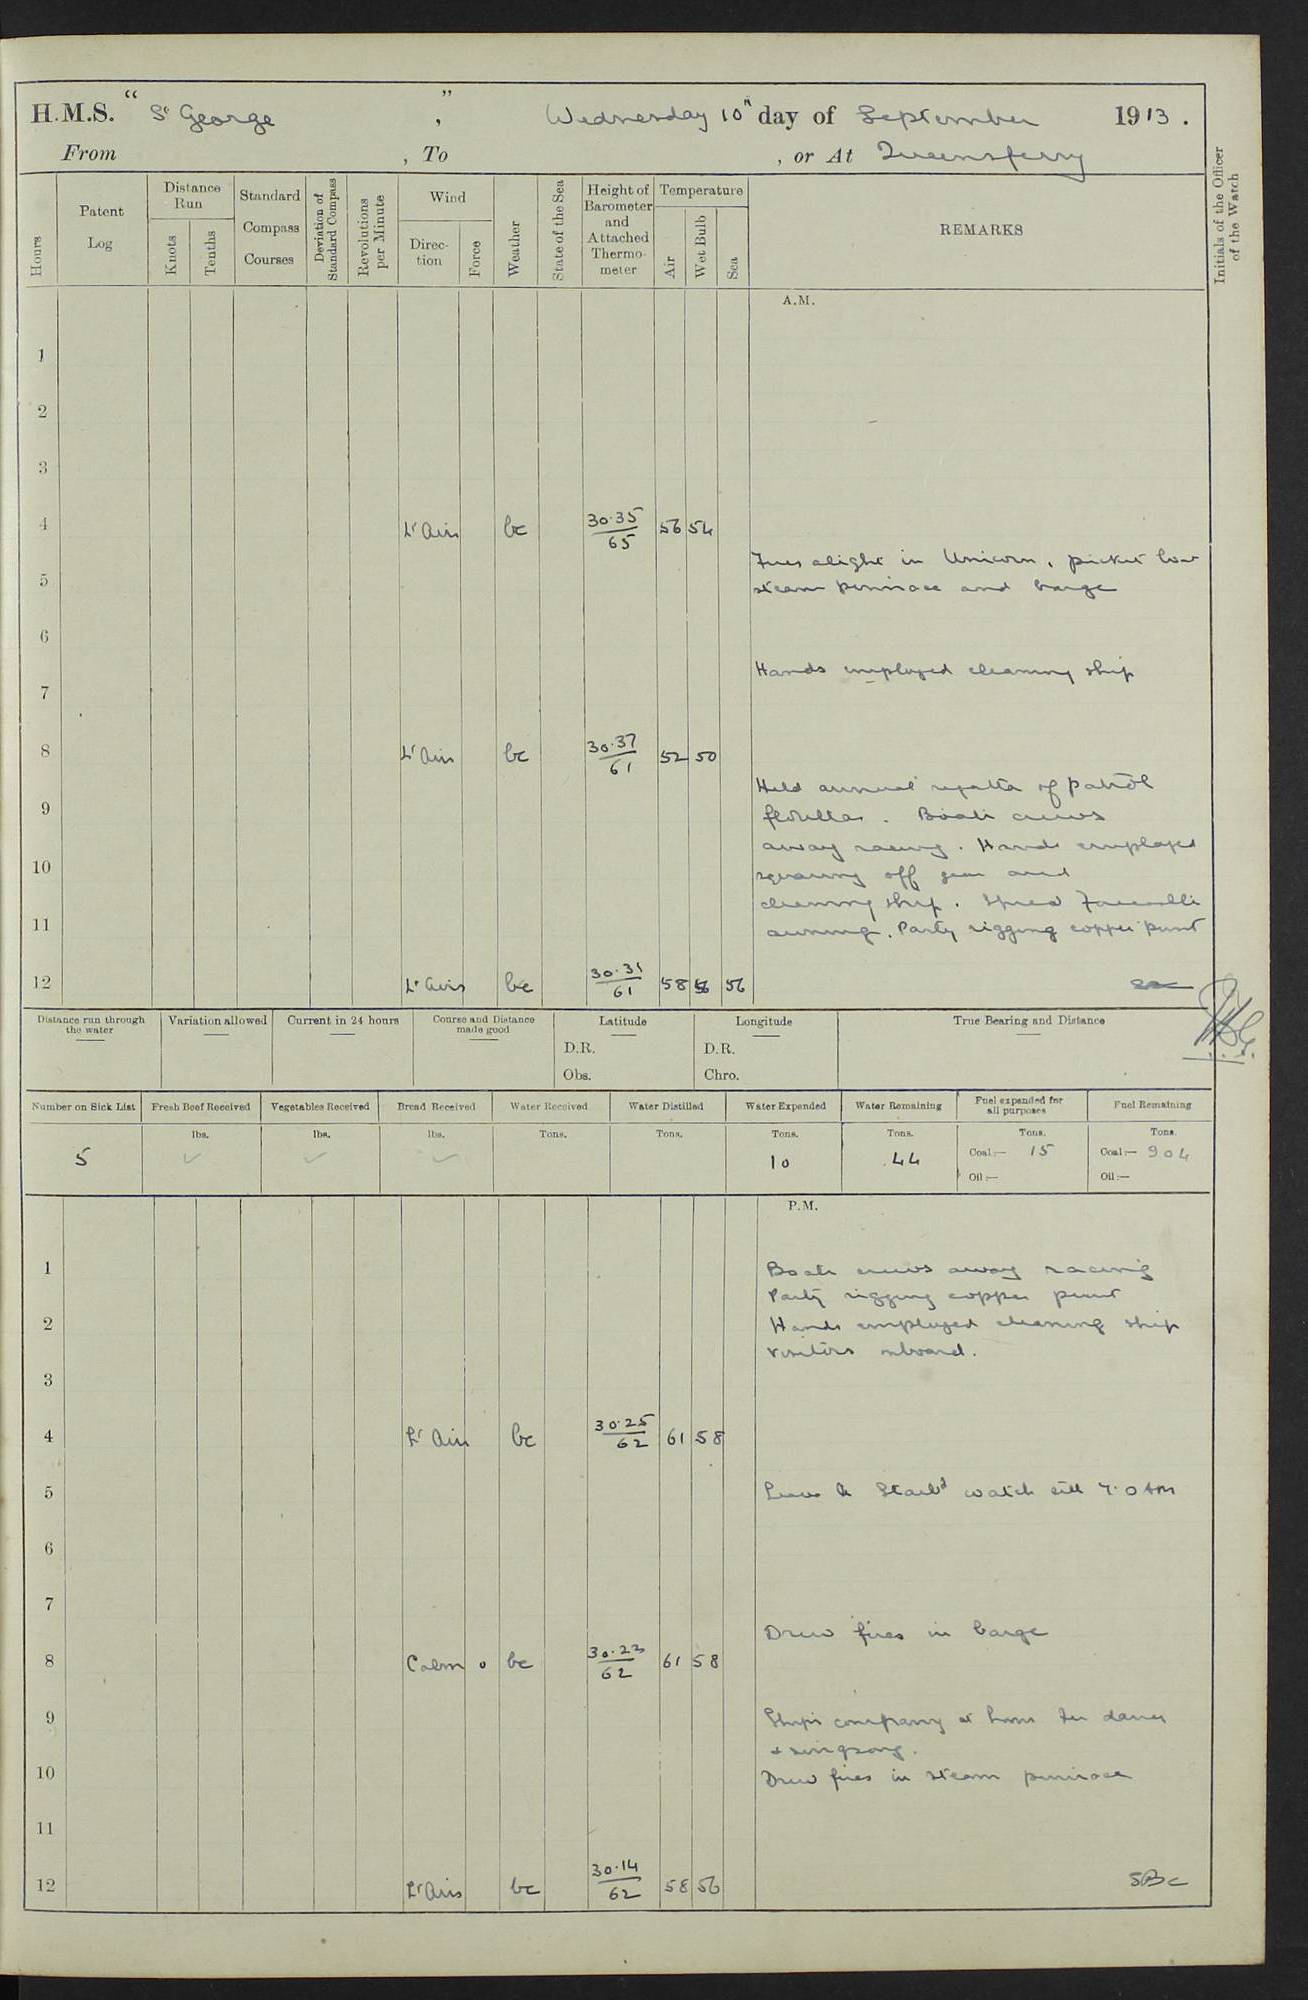 H.M.S. " St George ", Wednesday 10th day of September 1913.
From , To , or At Queensferry
Hours
Patent Log
Distance Run
Knots
Tenths
Standard Compass Courses
Deviation of Standard Compass
Revolutions per Minute
Wind
Direction
Force
Weather
State of the Sea
Height of Barometer and Attached Thermometer
Temperature
Air
Wet Bulb
Sea
REMARKS
Initials of the Officer of the Watch
A.M.
1
2
3
4 Lt Airs bc 30.35/65 56 54
Fires alight in Unicorn, picket boat
5 steam pinnace and barge
6
Hands employed cleaning ship
7
8 Lt Airs bc 30.37/61 52 50
Held annual regatta of patrol
9 flotillas. Boats crews
away racing. Hands employed
10 squaring off gear and
cleaning ship. Spread Forecastle
11 awning. Party rigging copper punt
12 Lt Airs bc 30.31/61 58 56 56
Distance run through the water
Variation allowed
Current in 24 hours
Course and Distance made good
Latitude
D.R.
Obs.
Longitude
D.R.
Chro.
True Bearing and Distance
Number on Sick List
Fresh Beef Received
Vegetables Received
Bread Received
Water Received
Water Distilled
Water Expended
Water Remaining
Fuel expended for all purposes
Fuel Remaining
lbs. lbs. lbs. Tons. Tons. Tons. Tons. Tons. Tons.
5 ✓ ✓ ✓ 10 44 Coal:— 15 Coal:— 904
Oil:— Oil:—
P.M.
1 Boats crews away racing
Party rigging copper punt
2 Hands employed cleaning ship
visitors onboard.
3
4 Lt Airs bc 30.25/62 61 58
5 Leave to Starbd watch till 7.0 AM
6
7
Drew fires in barge
8 Calm 0 bc 30.23/62 61 58
9 Ships company at home for dance
& singsong.
10 Drew fires in steam pinnace
11
12 Lt Airs bc 30.14/62 58 56 SBC